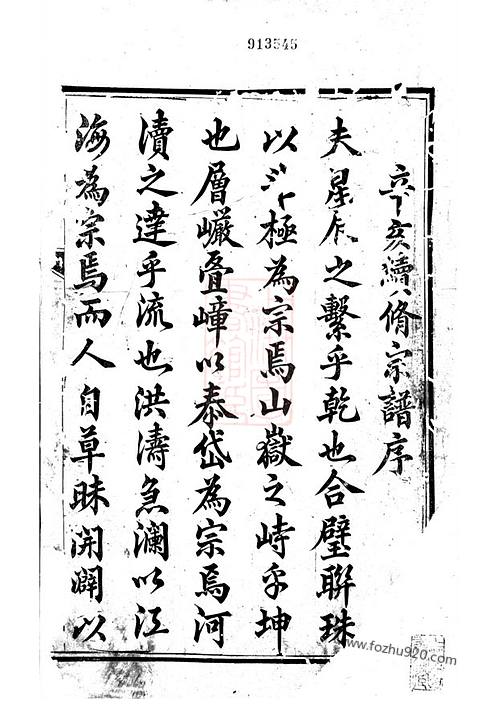 913545
辛亥續修宗譜序
夫星辰之繫乎乾也合璧聯珠
以斗極為宗焉山嶽之峙乎坤
也層巗疊嶂以泰岱為宗焉河
瀆之達乎流也洪濤急瀾以江
海為宗焉而人自草昧開闢以
www.fozhu920.com